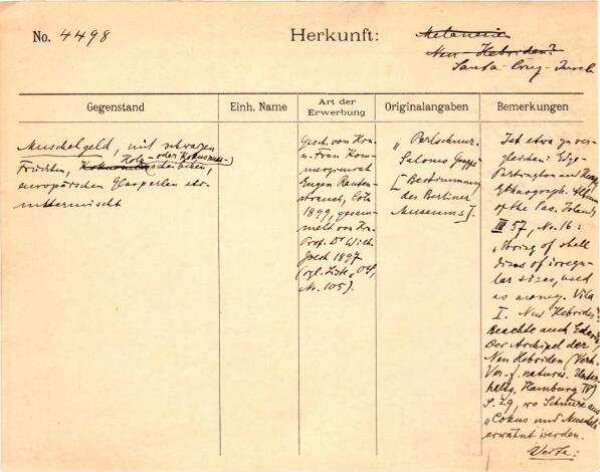 No. 4498
Herkunft:
Melanesien
Neu-Hebriden?
Santa-Cruz-Inseln
Gegenstand
Einh. Name
Art der
Erwerbung
Originalangaben
Bemerkungen
Muschelgeld, mit schwarzen
Früchten, Holz- oder Kokosnuss-
scheibchen,
europäischen Glasperlen etc.
untermischt
Gesch. von Herrn
u. Frau Kom-
merzienrat
Eugen Rauten-
strauch, Cöln
1899, gesam-
melt von Hr.
Prof. Dr Wilh.
Joest 1897
(vgl. Liste,
Nr. 105).
"Perlschnur.
Salomo Gruppe"
[Bestimmung
des Berliner
Museums].
Ist etwa zu ver-
gleichen: Edge-
Partington and Heape,
Ethnograph. Album
of the Pac. Islands
III 57, No. 16:
"String of shell
discs of irregu-
lar sizes, used
as money. Vila
I. Neu Hebrides"
Beachte auch
Der Archipel der
Neu Hebriden (Verh.
Ver. f. naturw. Unter-
haltg, Hamburg IV)
S. 29, wo Schnüre aus
"Cokus und Muscheln"
erwähnt werden.